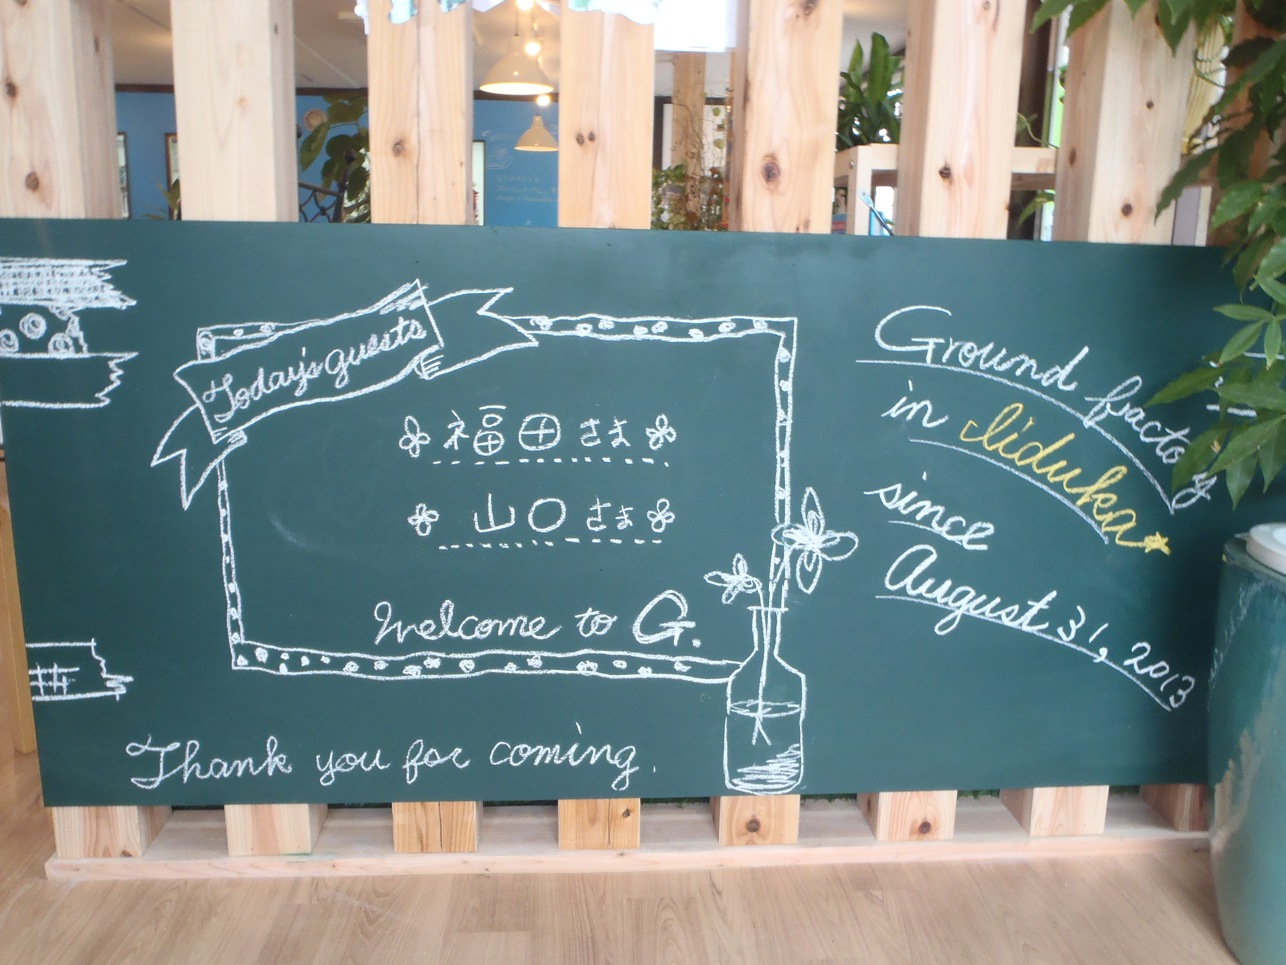 Today's guests
福田さま
山口さま
Welcome to G.
Thank you for coming.
Ground factory
in Iiduka
since
August 31, 2013